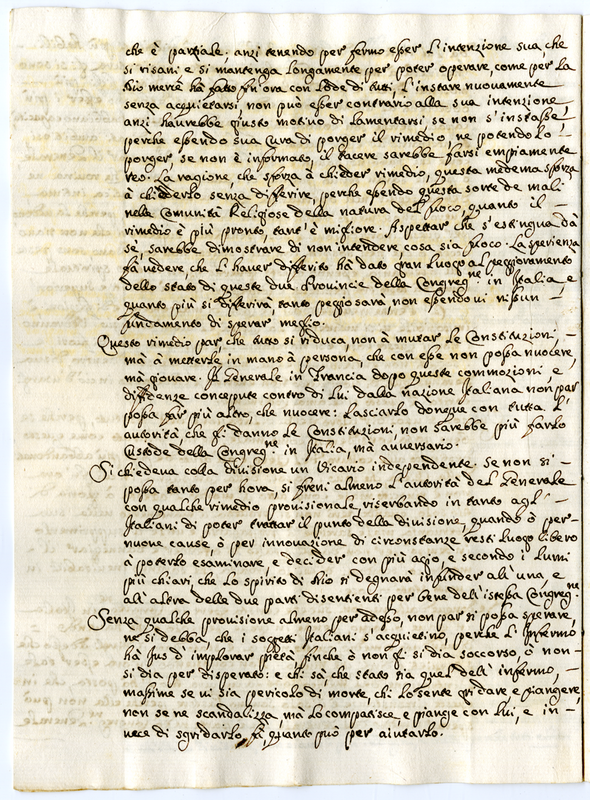 che è partiale; anzi tenendo per fermo esser l'intenzione sua, che
si risani e si mantenga longamente per poter operare, come per la
Dio mercè hà fatto fin'ora con lode di tutti, l'instare nuovamente
senza acquietarsi, non può esser contrario alla sua intenzione,
anzi havrebbe giusto motivo di lamentarsi se non s'instasse,
perche essendo sua cura di porger il rimedio, ne potendolo
porger se non è informato, il tacere sarebbe farsi empiamente
reo. La ragione, che sforza à chieder rimedio, questa medema sforza
à chiederlo senza differire, perche essendo questa sorte de mali
nelle Comunità Religiose della natura del fuoco, quanto il
rimedio è più pronto, tant'è migliore. Aspettar che s'estingua dà
sé, sarebbe dimostrare di non intendere, cosa sia fuoco. La sperienza
fà vedere che l'haver differito hà dato gran luogo al peggioramento
dello stato di queste due Provincie della Congreg.ne in Italia, e
quanto più si differirà, tanto peggiorarà, non essendovi nissun
fundamento di sperar meglio.
Questo rimedio par che tutto si riduca, non à mutar le Constituzioni,
mà à metterle in mano à persona, che con esse non possa nuocere,
mà giovare. Il Generale in Francia dopo queste commozioni e
diffidenze concepute contro di lui dalla nazione Italiana non par
possa far più altro, che nuocere: lasciarlo donque con tutta l'
autorità, che gli danno le Constituzioni, non sarebbe più farlo
Custode della Congreg.ne in Italia, mà avversario.
Si chiedeva colla divisione un Vicario independente. Se non si
possa tanto per hora, si freni almeno l'autorità del Generale
con qualche rimedio provisionale, riserbando in tanto agl'
Italiani di poter trattar il punto della divisione, quando ò per
nuove cause, ò per innovazione di circostanze resti luogo libero
à poterlo esaminare e decider con più agio, e secondo i lumi
più chiari, che lo spirito di Dio si degnarà infunder all'una, e
all'altra delle due parti disentienti per bene dell'istessa Congreg.ne
Senza qualche provisione almeno per adesso, non par si possa sperare,
ne si debba, che i soggetti Italiani s'acquietino, perche l'Infermo
hà Jus d'implorar pietà finche ò non gli si dia soccorso, ò non
si dia per disperato: e chi sà, che stato sia quel dell'infermo,
massime se vi sia pericolo di morte, chi lo sente gridare e piangere,
non se ne scandalizza, mà lo compatisce, e piange con lui, e in
vece di sgridarlo, fà, quanto può per aiutarlo.